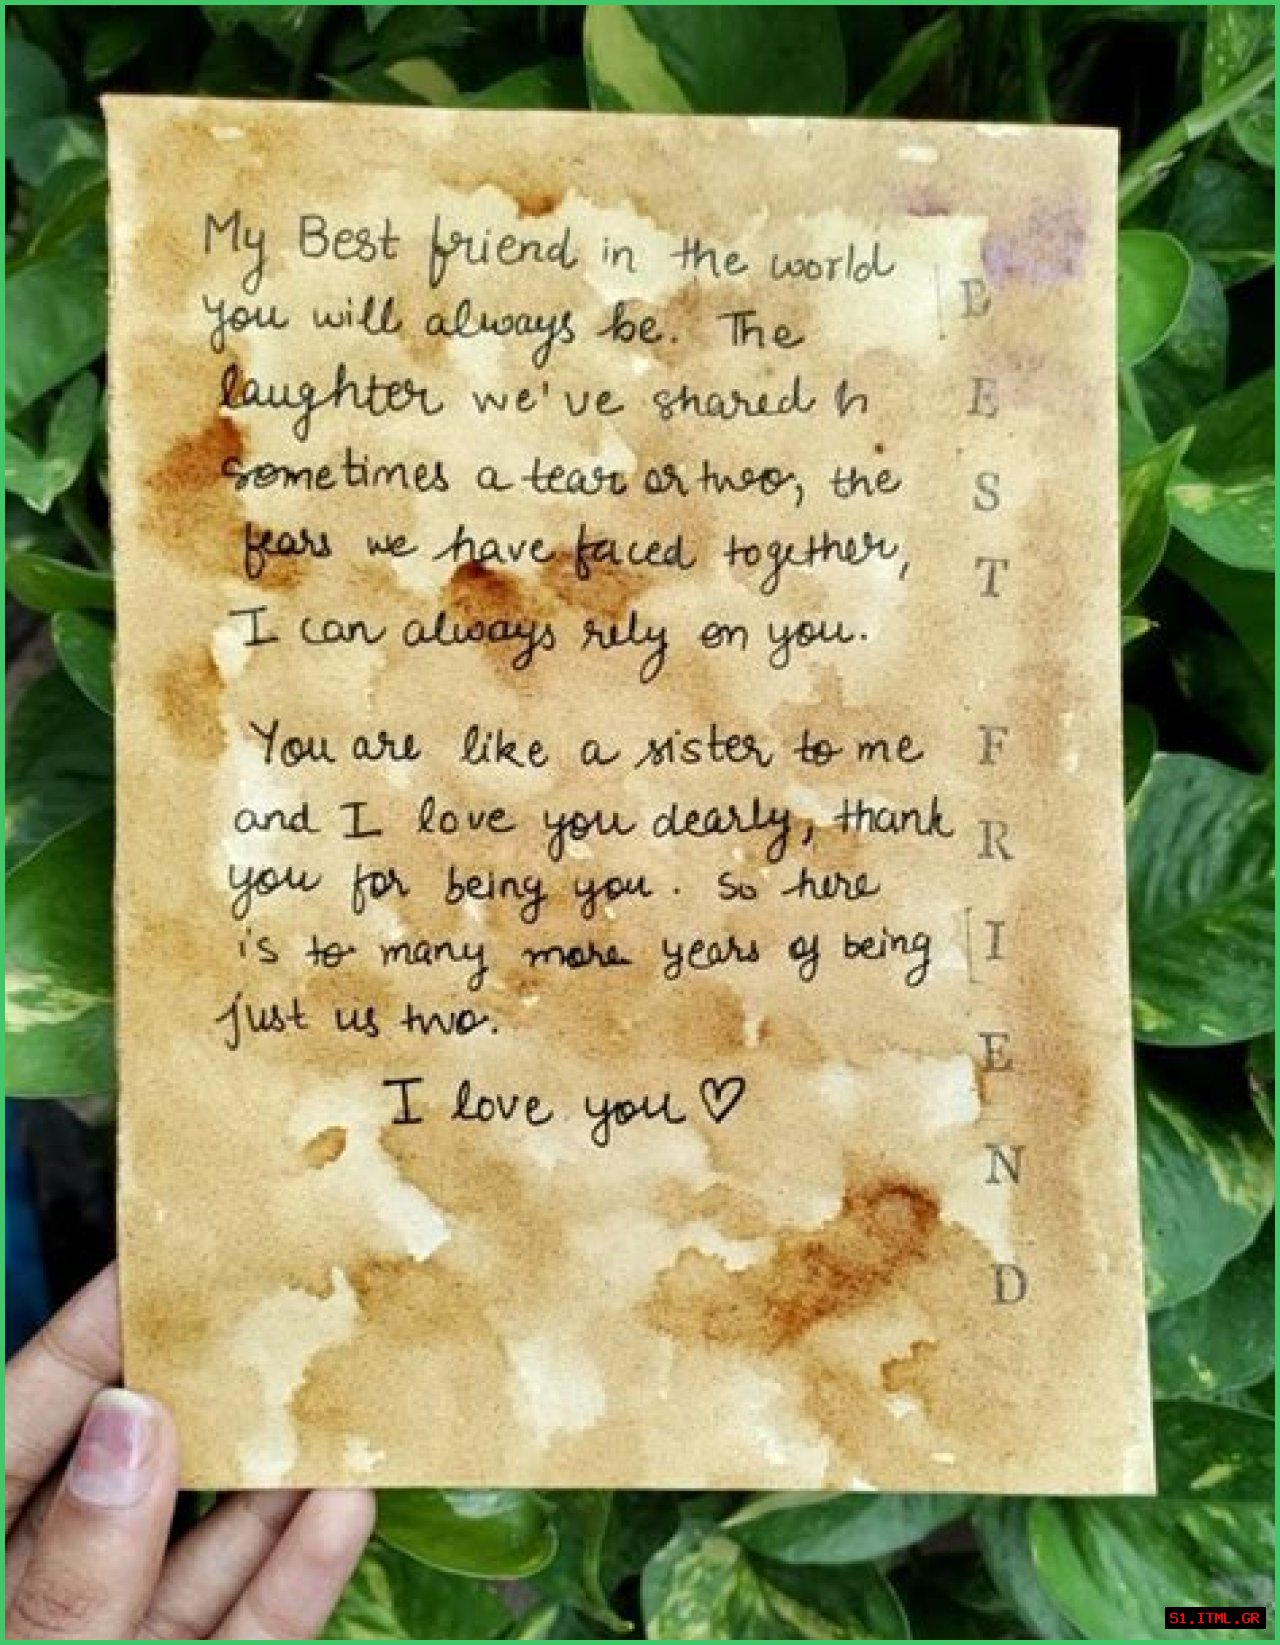 My Best friend in the world
you will always be. The
laughter we've shared h
sometimes a tear or two, the
fears we have faced together,
I can always rely on you.
You are like a sister to me
and I love you dearly, thank
you for being you. So here
is to many more years of being
just us two.
I love you ♡
BEST FRIEND
S1.ITML.GR